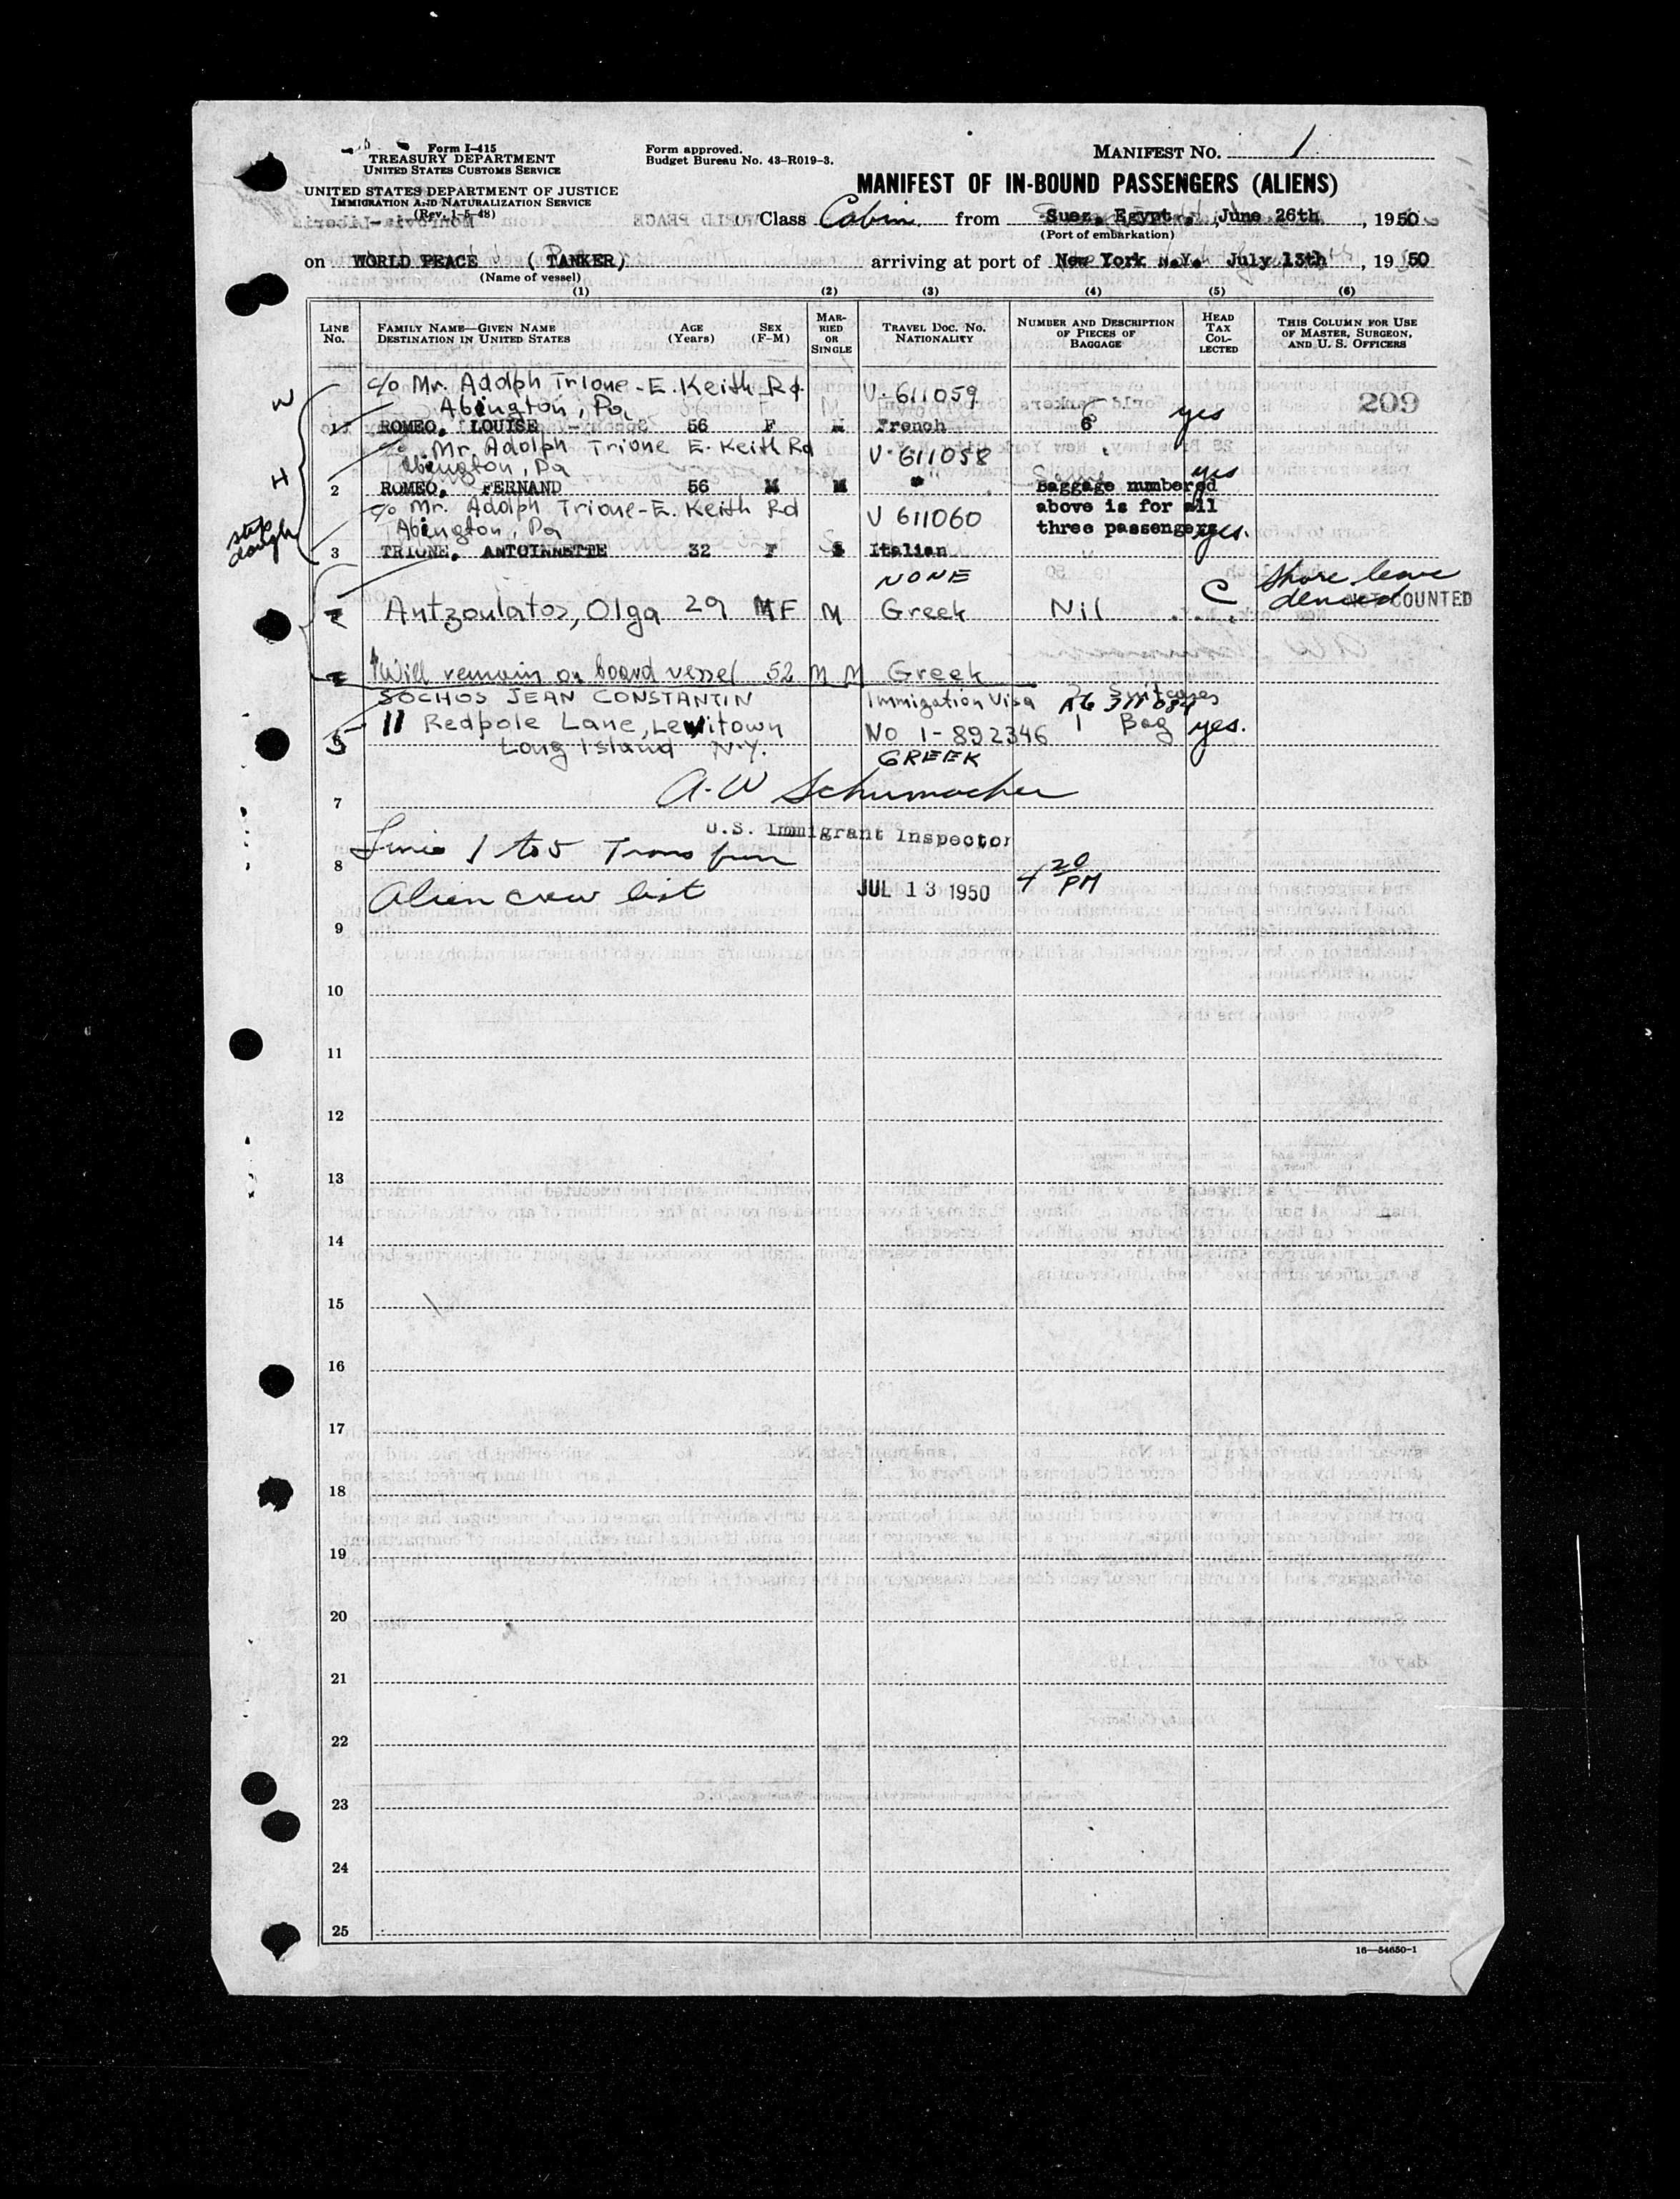 Form I-415
TREASURY DEPARTMENT
UNITED STATES CUSTOMS SERVICE
UNITED STATES DEPARTMENT OF JUSTICE
IMMIGRATION AND NATURALIZATION SERVICE
(Rev. 1-5-48)
Form approved.
Budget Bureau No. 43-R019-3.
MANIFEST NO. 1
MANIFEST OF IN-BOUND PASSENGERS (ALIENS)
Class Cabin from Suez, Egypt, June 26th, 1950
(Port of embarkation)
on WORLD PEACE (TANKER) arriving at port of New York N.Y. July 13th, 1950
(Name of vessel)
(1) (2) (3) (4) (5) (6)
LINE NO.
FAMILY NAME—GIVEN NAME
DESTINATION IN UNITED STATES
AGE (Years)
SEX (F-M)
MARRIED OR SINGLE
TRAVEL DOC. NO.
NATIONALITY
NUMBER AND DESCRIPTION OF PIECES OF BAGGAGE
HEAD TAX COLLECTED
THIS COLUMN FOR USE OF MASTER, SURGEON, AND U. S. OFFICERS
209
W
c/o Mr. Adolph Trione - E. Keith Rd. V-611059
Abington, Pa
1 ROMEO, LOUISE 56 F M French 6 yes
c/o Mr. Adolph Trione E. Keith Rd V-611058
Abington, Pa
H
2 ROMEO, FERNAND 56 M M " yes
Baggage numbered
above is for all
three passengers
c/o Mr. Adolph Trione - E. Keith Rd V 611060
Abington, Pa
step daugh
3 TRIONE, ANTOINNETTE 32 F S Italian yes.
NONE
Antzoulatos, Olga 29 F M Greek Nil C Shore leave denied
NOT COUNTED
Will remain on board vessel 52 M M Greek
SOCHOS JEAN CONSTANTIN Immigration Visa 2 Suitcases
11 Redpole Lane, Levitown No 1-892346 1 Bag yes.
5 Long Island N.Y. GREEK
A.W Schumacher
U.S. Immigrant Inspector
7
Line 1 to 5 Trans from
8
Alien crew list JUL 13 1950 4 20 PM
9
10
11
12
13
14
15
16
17
18
19
20
21
22
23
24
25
16—54650-1